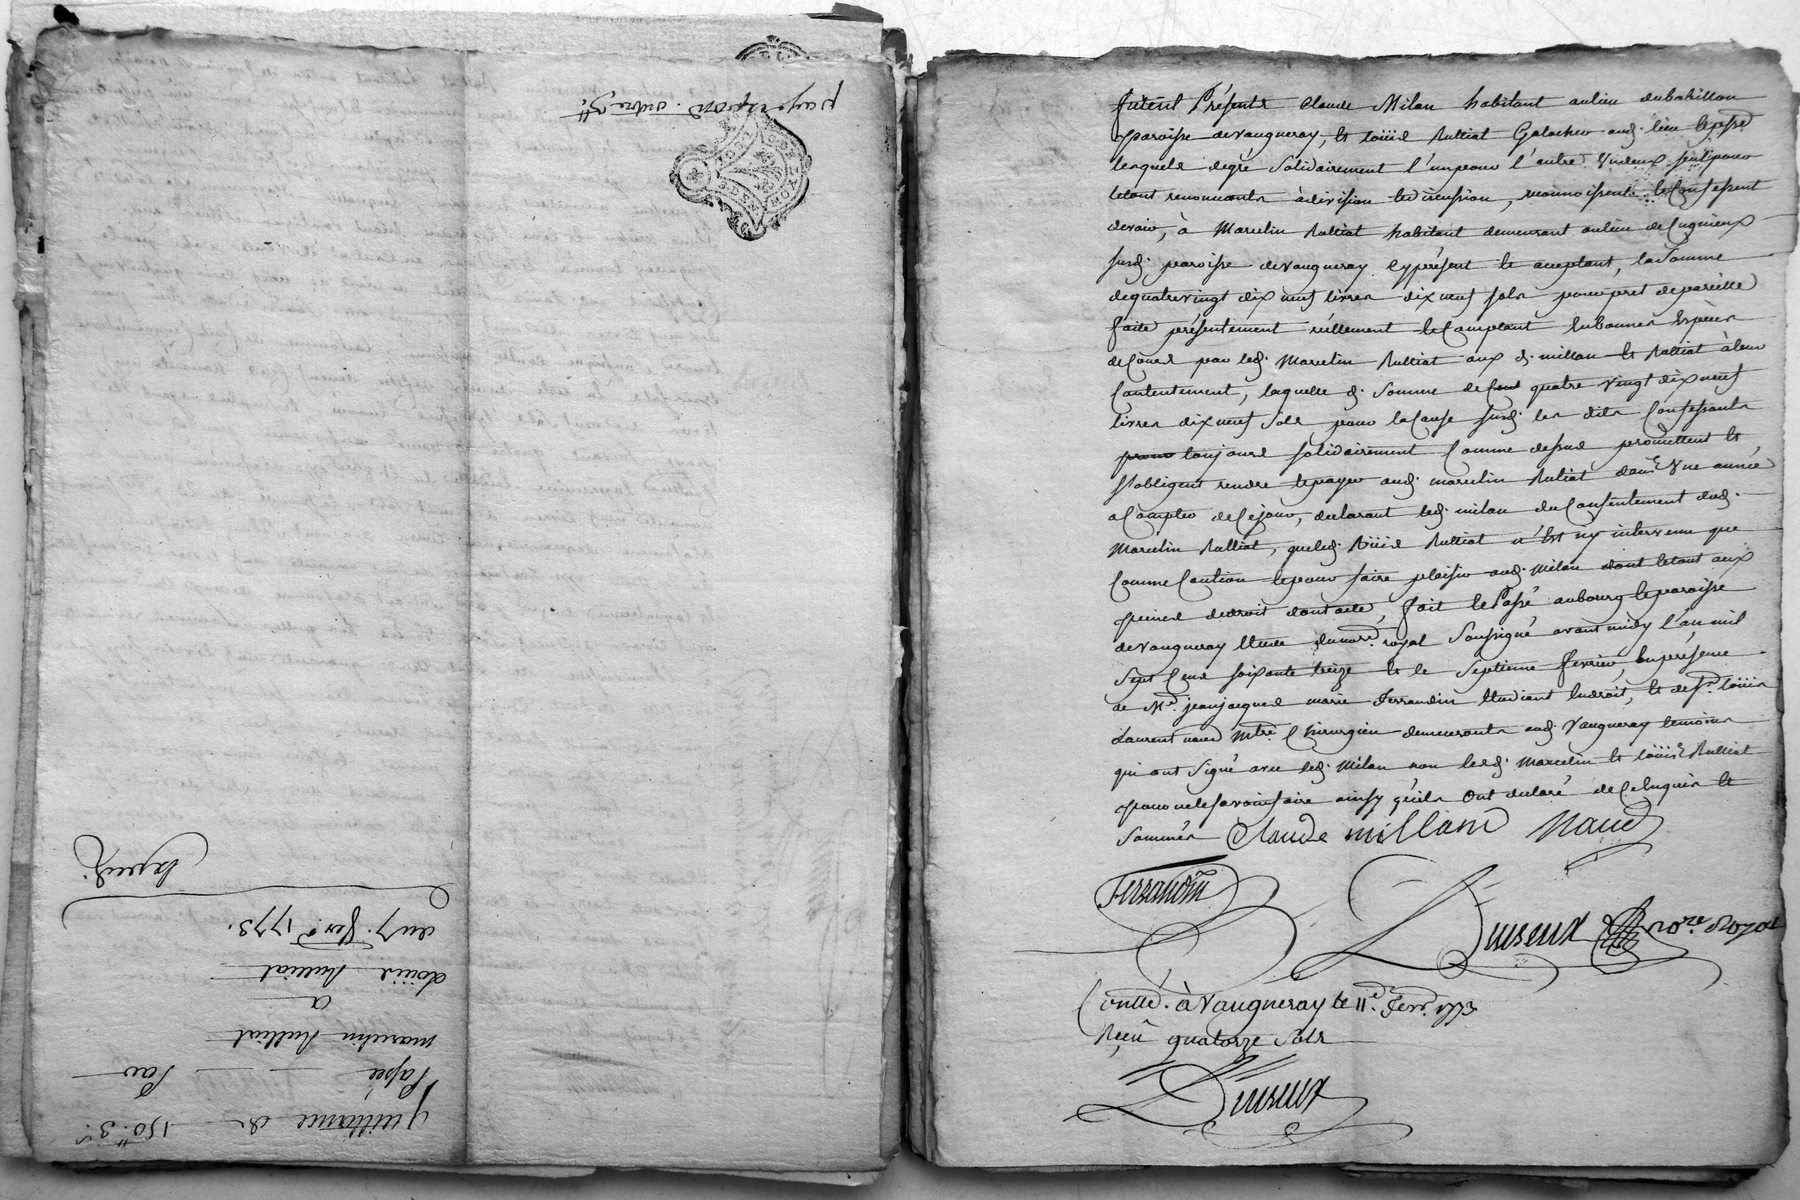 pay exped. ordre 3.tt
GEN. DE LYON
Quittance de 150.tt 3.s
Passée Par
marcelin Rulliat
a
Loüis Rulliat
du 7. fevr. 1773.
Exped.
furent Présents Claude Milan habitant aulieu dubatillon
paroisse devaugneray, et Loüis Rulliat Galocher aud. lieu et parsse
lesquels degré Solidairement l'un pour l'autre Undeux seul pour
letout renonceants àdivision et discussion, reconnoissent et Confessent
devoir, à Marcelin Rulliat habitant demeurant aulieu de
susd. paroisse devaugneray cy présent et aceptant, la Somme
dequatrevingt dix neuf livres dix neuf sols pour pret de pareille
faite présentement réellement et Comptant En bonnes Espèces
de Cours par led. Marcelin Rulliat aux d. millan et Rulliat àleur
Contentement, laquelle d. Somme de Cent quatre vingt dix neuf
livres dix neuf Sols pour la Cause susd. les dits Confessants
toujours solidairement Comme dessus promettent et
s'obligent rendre et payer aud. marcelin Rulliat dans Une année
a Compter de Cejour, declarant led. milan du Consentement dud.
Marcelin Rulliat, queled. Loüis Rulliat n'Est ny intervenu que
Comme Caution et pour faire plaisir aud. Milan dont letout aux
peines dedroit dont acte, fait et Passé aubourg et paroisse
devaugneray Etude dunore royal Soussigné avant midy l'an mil
Sept Cent soixante treize et le Septieme fevrier, En présence
de Mr. jeanjacques marie Ferrandin Etudiant En droit, et de Sr. Loüis
Laurent naud Mtre Chirurgien demeurants aud. Vaugneray temoins
qui ont Signé avec led. Milan non lesd. Marcelin et Loüis Rulliat
pour nele savoir faire ainsy qu'ils Ont declaré de Ce Enquis et
Sommés Claude millan Naud
Ferrandin
Duseux nore Royal
Contlé. à Vaugneray le 11e. Fevr. 1773
Reçu quatorze Sols
Duseux